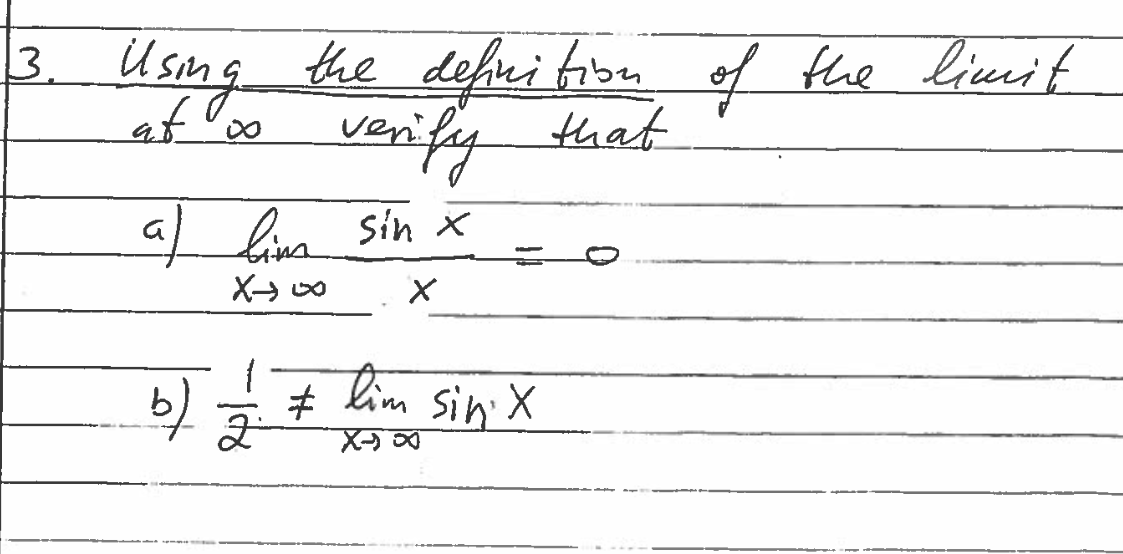 3. Using the definition of the limit
at ∞ verify that
a) lim x→∞ sin x / x = 0
b) 1/2 ≠ lim x→∞ sin x